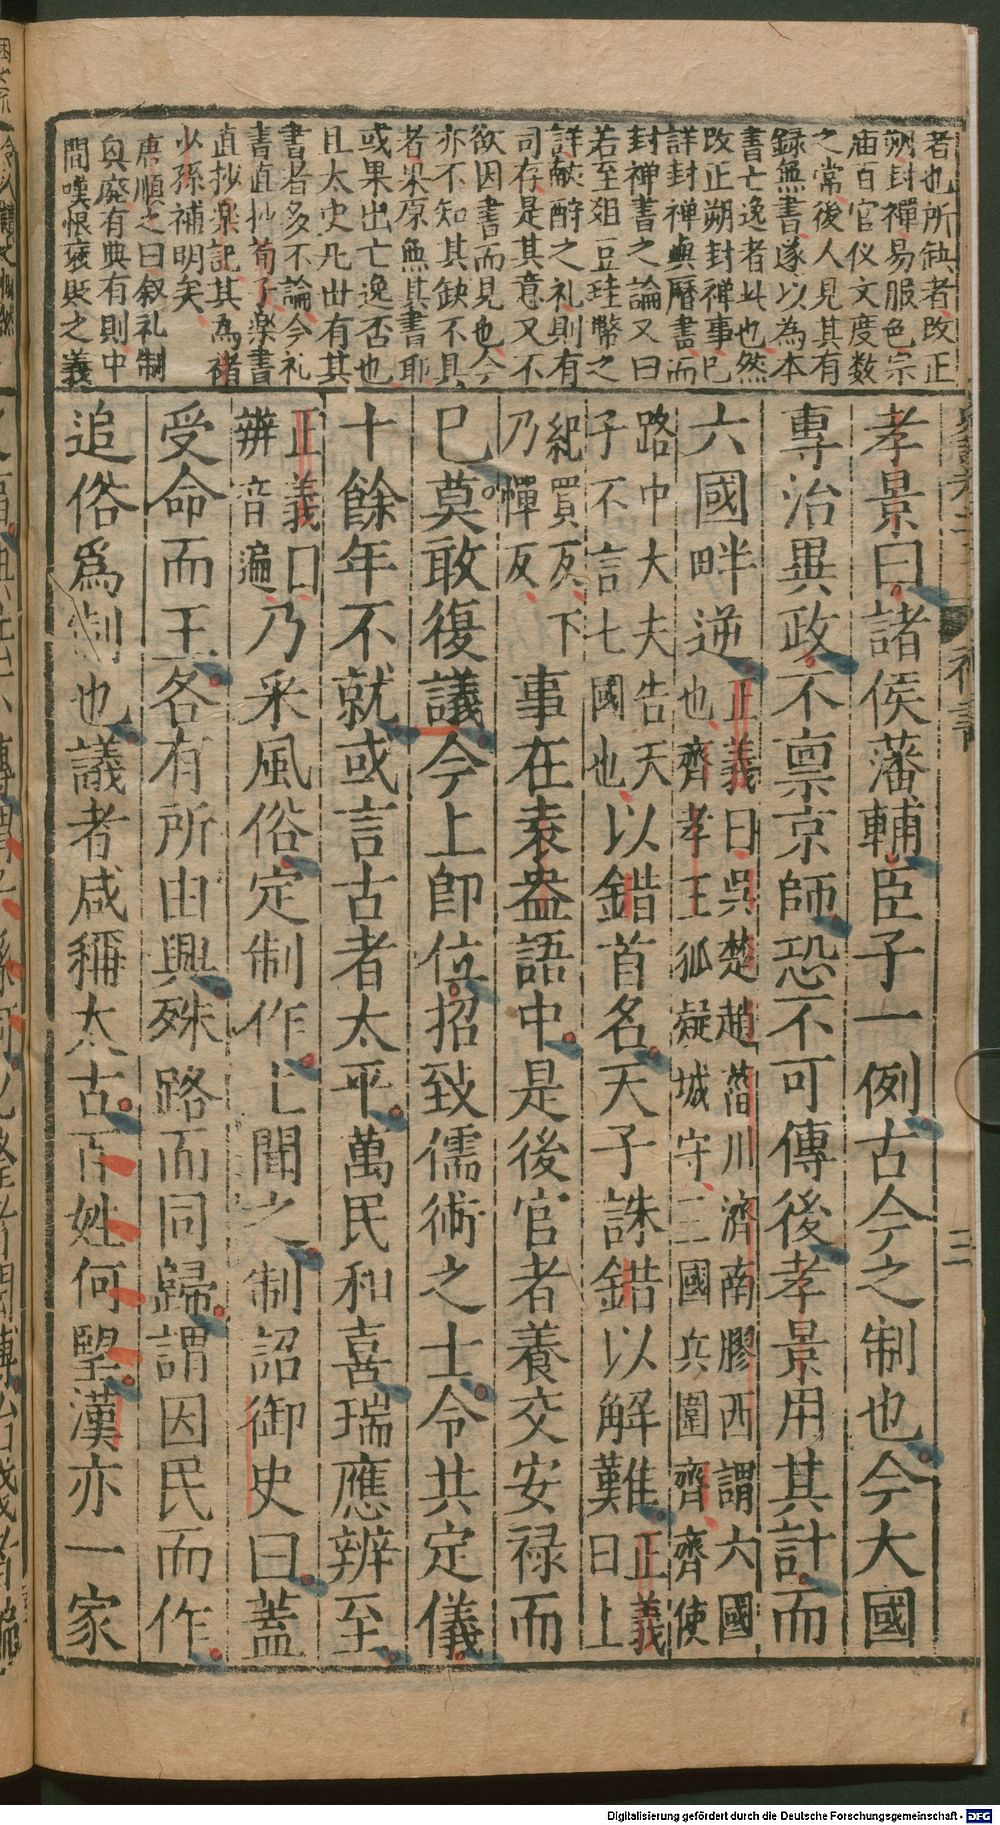 者也所缺者改正
朔封禪易服色宗
庙百官仪文度数
之常後人見其有
録無書遂以為本
書亡逸者此也然
改正朔封禅事已
詳封禅與暦書而
封禅書之論又曰
若至俎豆珪幣之
詳献酧之礼則有
司存是其意又不
欲因書而見也今
亦不知其缺不具
者果原無其書耶
或果出亡逸否也
且太史凡世有其
書者多不論今礼
書直抄荀子楽書
直抄楽記其為禇
少孫補明矣
唐順之曰叙礼制
與廃有典有則中
間嘆恨褒貶之義
孝景曰諸侯藩輔臣子一例古今之制也今大國
專治異政不禀京師恐不可傳後孝景用其計而
六國畔逆
正義曰吳楚趙菑川濟南膠西謂六國
也齊孝王狐疑城守三國兵圍齊齊使
路中大夫告天
子不言七國也
以錯首名天子誅錯以解難
正義
曰上
紀買反下
乃憚反
事在袁盎語中是後官者養交安禄而
已莫敢復議今上卽位招致儒術之士令共定儀
十餘年不就或言古者太平萬民和喜瑞應辨至
正義曰
辨音遍
乃采風俗定制作上聞之制詔御史曰蓋
受命而王各有所由興殊路而同歸謂因民而作
追俗爲制也議者咸稱太古百姓何望漢亦一家
禮書
三
Digitalisierung gefördert durch die Deutsche Forschungsgemeinschaft - DFG